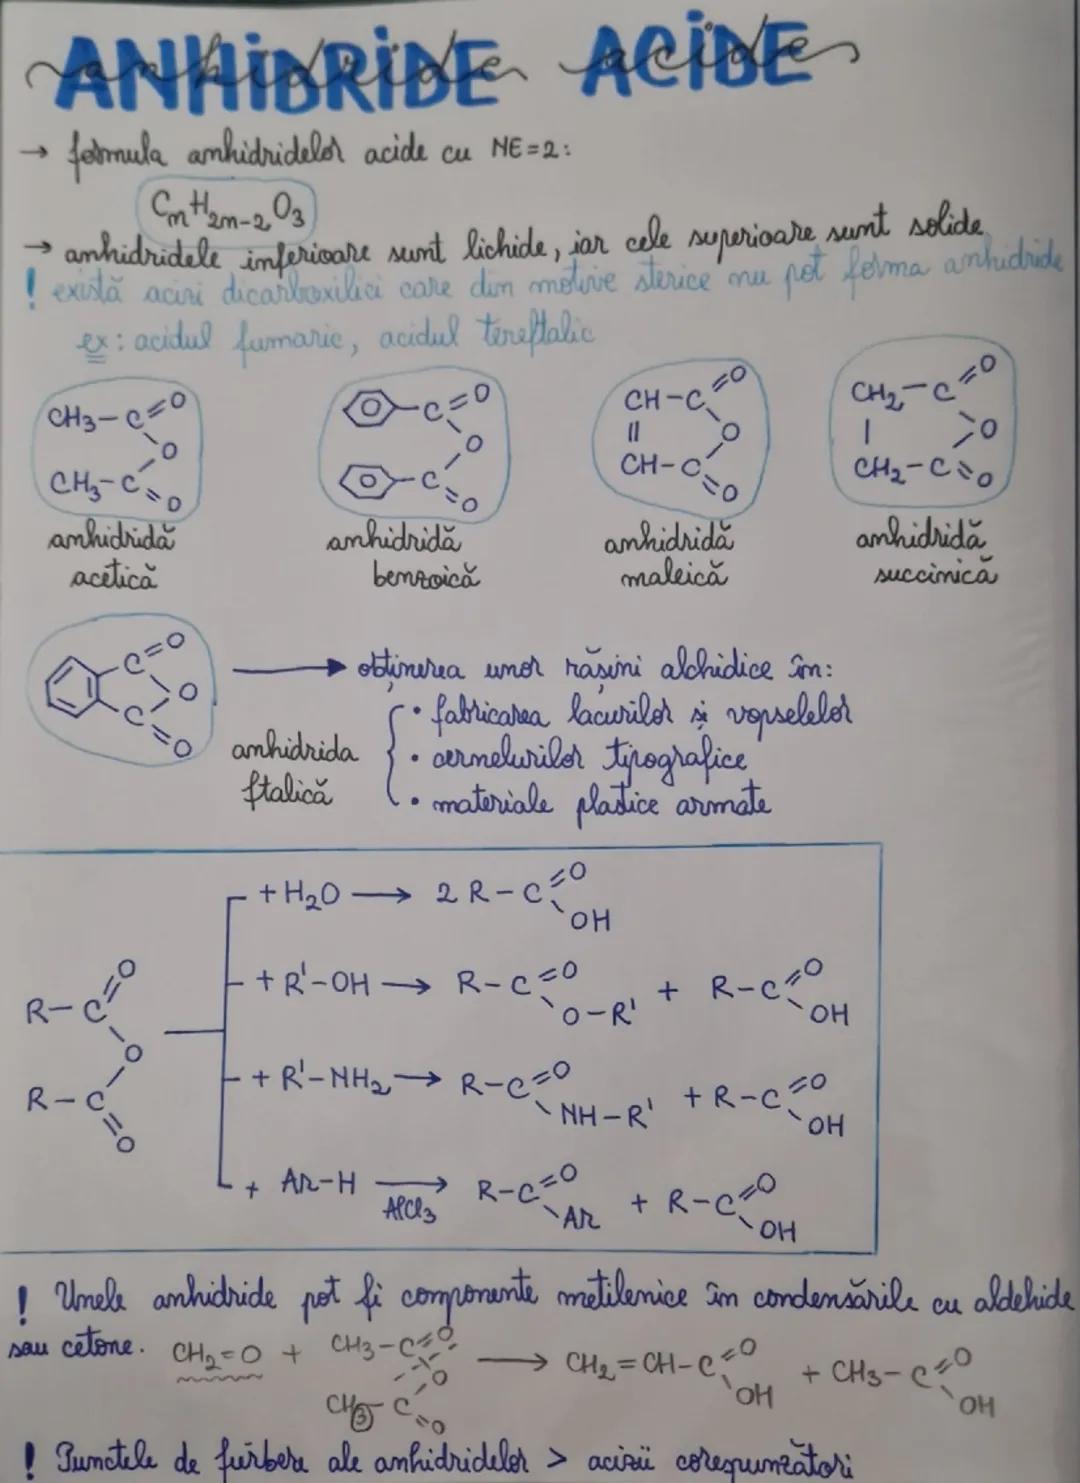 ANHIDRIDE ACIDE
anhidride acide
→ formula anhidridelor acide cu NE=2:
CnH2n-2O3
→ anhidridele inferioare sunt lichide, iar cele superioare sunt solide
! există acizi dicarboxilici care din motive sterice nu pot forma anhidride
ex: acidul fumaric, acidul tereftalic
CH3-C=O O CH3-C=O
C=O O C=O
CH-C=O || O CH-C=O
CH2-C=O | O CH2-C=O
anhidridă acetică
anhidridă benzoică
anhidridă maleică
anhidridă succinică
C=O O C=O → obținerea unor rășini alchidice în:
• fabricarea lacurilor și vopselelor
anhidrida ftalică
• cernelurilor tipografice
• materiale plastice armate
R-C=O O R-C=O
+ H2O → 2 R-C=O OH
+ R'-OH → R-C=O O-R' + R-C=O OH
+ R'-NH2 → R-C=O NH-R' + R-C=O OH
+ Ar-H → AlCl3 R-C=O Ar + R-C=O OH
! Unele anhidride pot fi componente metilenice în condensările cu aldehide
sau cetone. CH2=O + CH3-C=O O CH3-C=O → CH2=CH-C=O OH + CH3-C=O OH
! Punctele de fierbere ale anhidridelor > acizii corespunzători